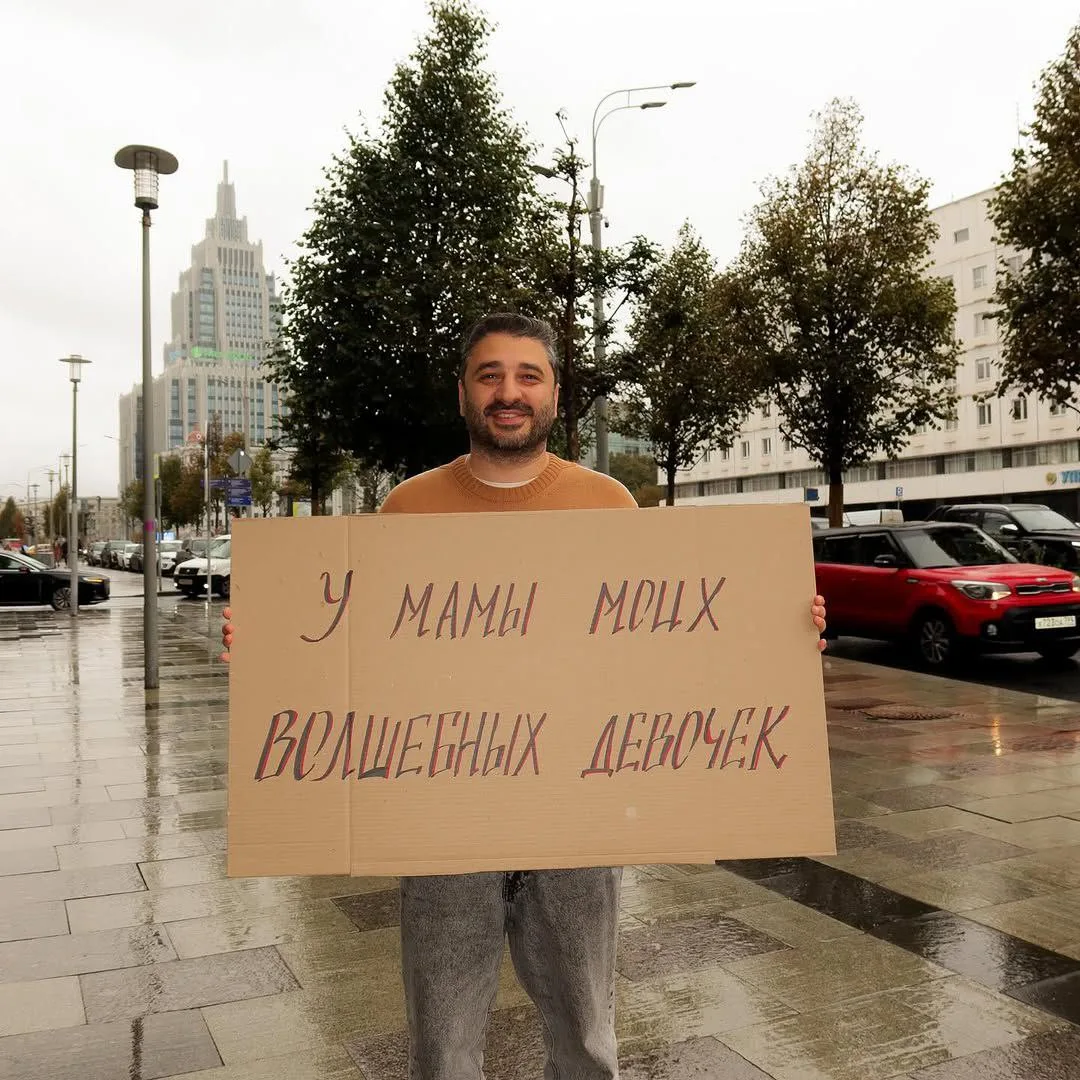 У МАМЫ МОИХ
ВОЛШЕБНЫХ ДЕВОЧЕК